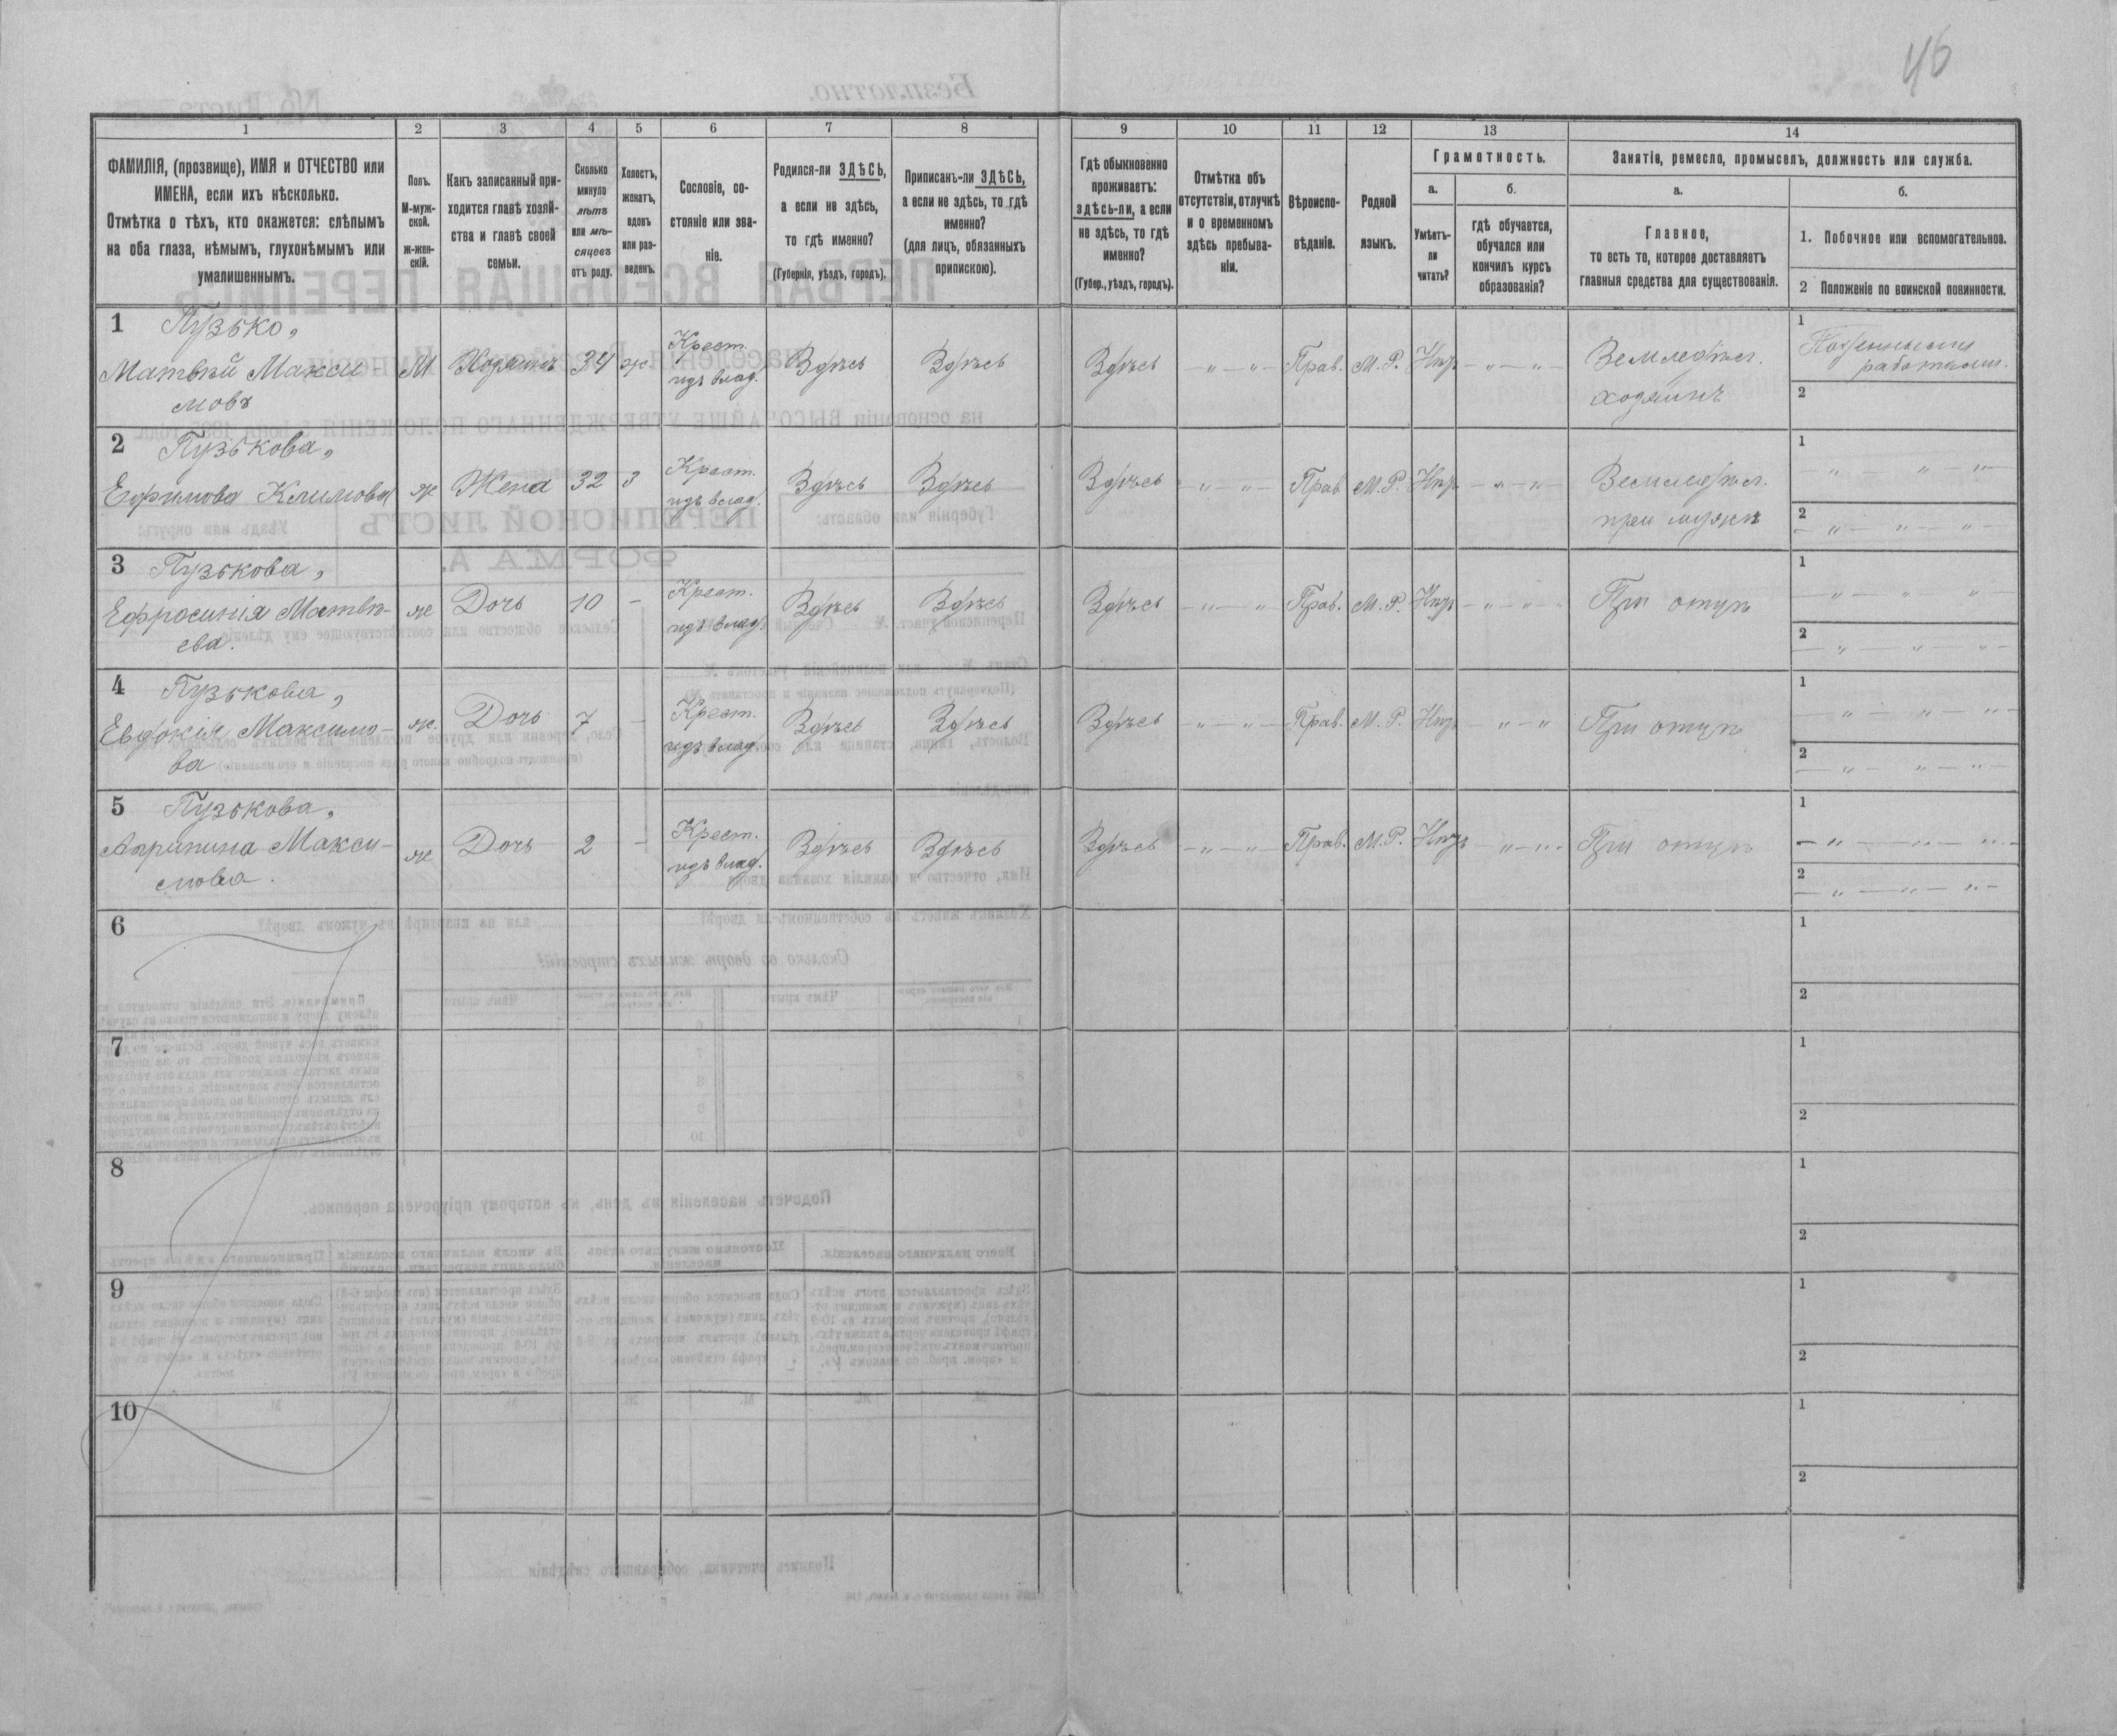 46
1 2 3 4 5 6 7 8 9 10 11 12 13 14
ФАМИЛІЯ, (прозвище), ИМЯ и ОТЧЕСТВО или
ИМЕНА, если ихъ нѣсколько.
Отмѣтка о тѣхъ, кто окажется: слѣпымъ
на оба глаза, нѣмымъ, глухонѣмымъ или
умалишеннымъ.
Полъ.
М-муж-
ской.
ж-жен-
скій.
Какъ записанный при-
ходится главѣ хозяй-
ства и главѣ своей
семьи.
Сколько
минуло
лѣтъ
или мѣ-
сяцевъ
отъ роду.
Холостъ,
женатъ,
вдовъ
или раз-
веденъ.
Сословіе, со-
стояніе или зва-
ніе.
Родился-ли ЗДѢСЬ,
а если не здѣсь,
то гдѣ именно?
(Губернія, уѣздъ, городъ).
Приписанъ-ли ЗДѢСЬ,
а если не здѣсь, то гдѣ
именно?
(для лицъ, обязанныхъ
припискою).
Гдѣ обыкновенно
проживаетъ:
здѣсь-ли, а если
не здѣсь, то гдѣ
именно?
(Губер., уѣздъ, городъ).
Отмѣтка объ
отсутствіи, отлучкѣ
и о временномъ
здѣсь пребыва-
ніи.
Вѣроиспо-
вѣданіе.
Родной
языкъ.
Грамотность.
а.
Умѣетъ-
ли
читать?
б.
гдѣ обучается,
обучался или
кончилъ курсъ
образованія?
Занятіе, ремесло, промыселъ, должность или служба.
а.
Главное,
то есть то, которое доставляетъ
главныя средства для существованія.
б.
1. Побочное или вспомогательное.
2 Положеніе по воинской повинности.
1 Пузько,
Матвѣй Макси-
мовъ
М Хозяинъ 34 ж. Крест.
изъ влад. Здѣсь Здѣсь Здѣсь — " — " — Прав. М. Р. Нѣт — " — " —
Земледѣл.
хозяинъ
1 Поденными
работами.
2
2 Пузькова,
Ефимова Климова
ж Жена 32 з Крест.
изъ влад. Здѣсь Здѣсь Здѣсь — " — " — Прав М. Р. Нѣт — " — " —
Земледѣл.
при мужѣ
1 — " — " — " —
2 — " — " — " —
3 Пузькова,
Ефросинія Матвѣ-
ева.
ж Дочь 10 — Крест.
изъ влад. Здѣсь Здѣсь Здѣсь — " — " Прав. М. Р. Нѣт — " — "
При отцѣ
1 — " — " — "
2 — " — " — " —
4 Пузькова,
Евдокія Максимо-
ва
ж. Дочь 7 — Крест.
изъ влад. Здѣсь Здѣсь Здѣсь — " — " — Прав. М. Р. Нѣт — " — "
При отцѣ
1 " — " — " —
2 — " — " — " —
5 Пузькова,
Агрипина Макси-
мова.
ж Дочь 2 — Крест.
изъ влад. Здѣсь Здѣсь Здѣсь — " — " Прав. М. Р. Нѣт — " — " —
При отцѣ
1 — " — " — " —
2 — " — " — " —
6 1
2
7 1
2
8 1
2
9 1
2
10 1
2